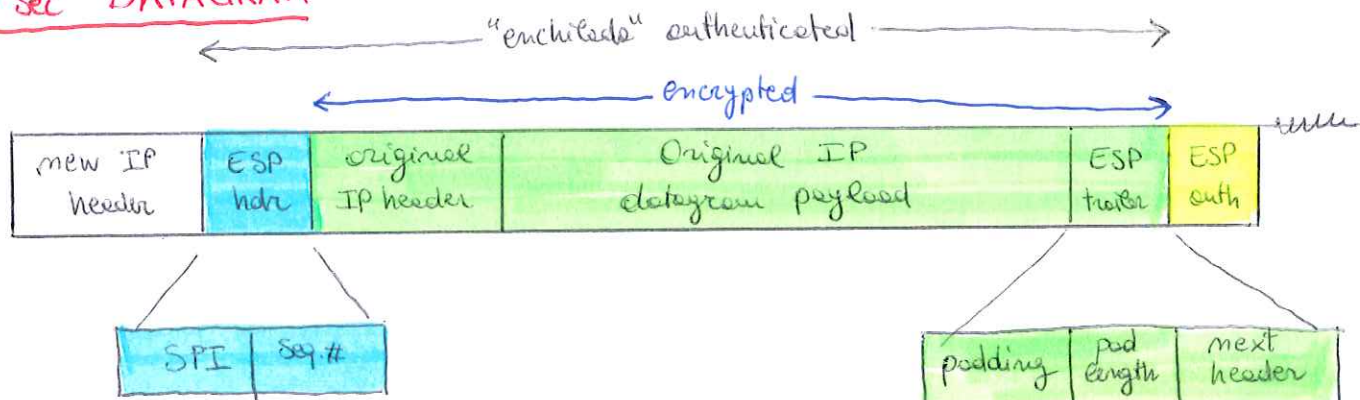 sec DATAGRAM
"enchilada" authenticated
encrypted
new IP
header
ESP
hdr
original
IP header
Original IP
datagram payload
ESP
trailer
ESP
auth
SPI
Seq.#
padding
pad
length
next
header